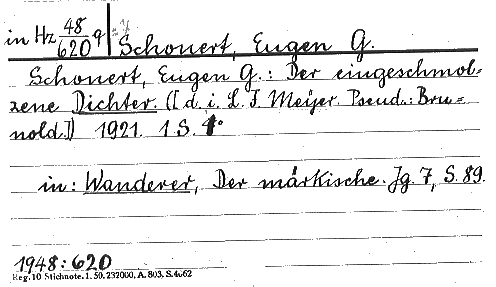 in Hz 48/620 q Schonert, Eugen G.
Schonert, Eugen G.: Der eingeschmol-
zene Dichter. ([d. i. L. F. Meijer. Pseud.: Bru=
nold.]) 1921. 1 S. 4°
in: Wanderer, Der märkische. Jg. 7, S. 89.
1948:620
Reg. 10 Stichnote. 1. 50. 232000, A. 803. S. 4062